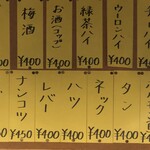 ウーロンハイ
¥400
緑茶ハイ
¥400
お酒(コップ)
¥400
梅酒
¥400
タン
¥400
ネック
¥400
ハツ
¥400
レバー
¥400
ナンコツ
¥450